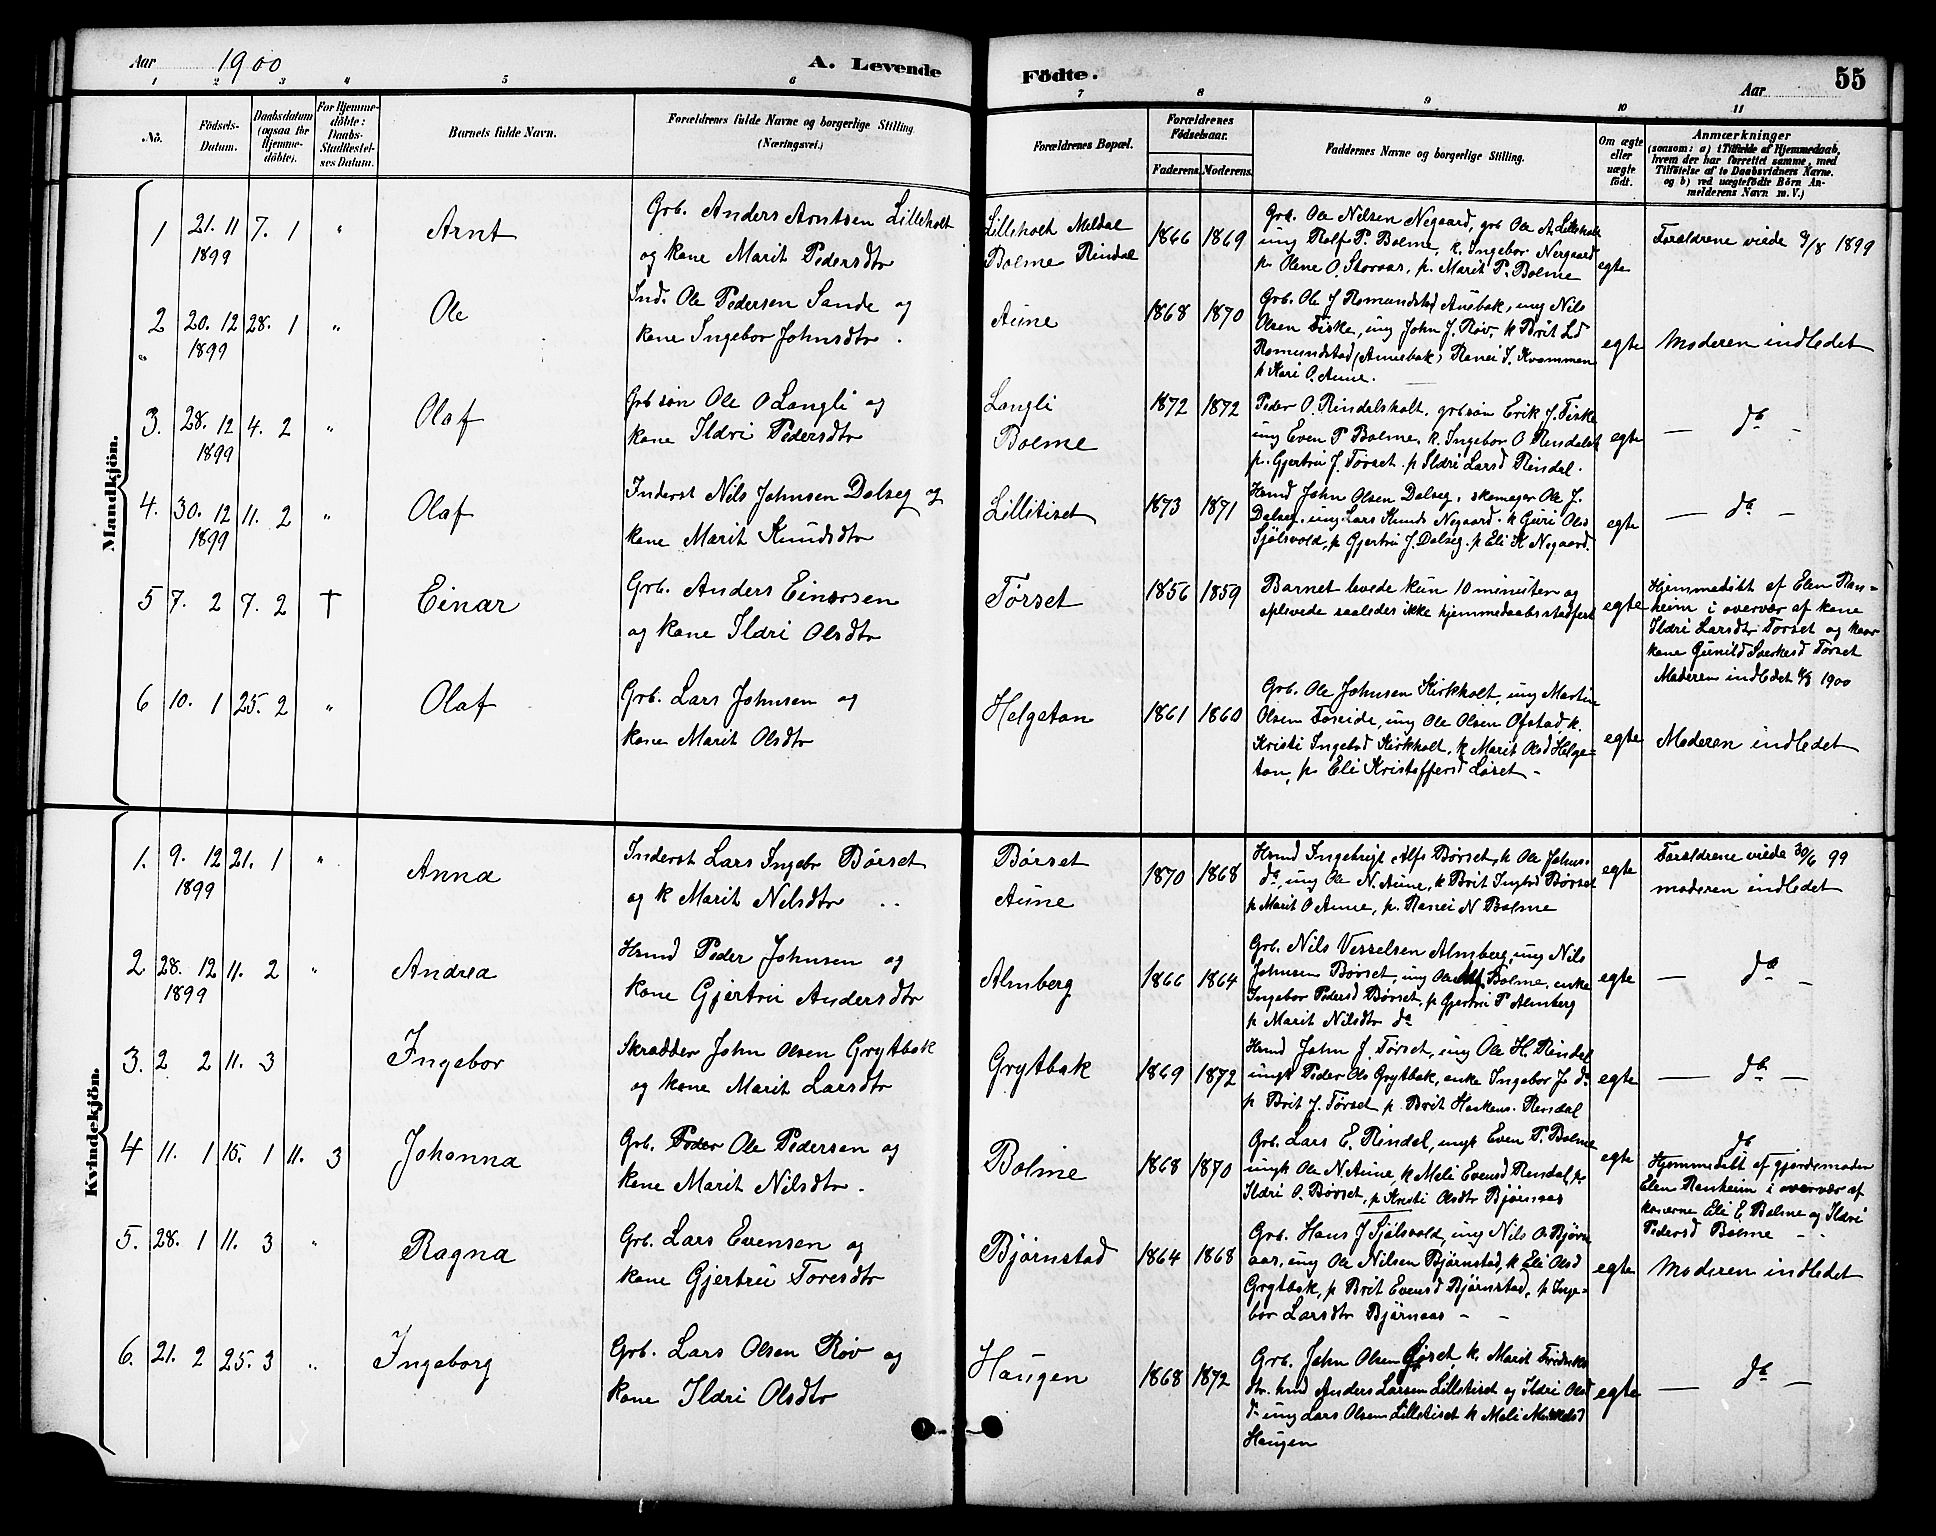 Aar 1900
A. Levende Födte.
Aar
55
1 2 3 4 5 6 7 8 9 10 11
No.
Födsels-Datum.
Daabsdatum (ogsaa for Hjemme-döbte).
For Hjemme-döbte: Daabs-Stadfæstel-ses Datum.
Barnets fulde Navn.
Forældrenes fulde Navne og borgerlige Stilling (Næringsvei.)
Forældrenes Bopæl.
Forældrenes Födselsaar.
Faderens. Moderens.
Faddernes Navne og borgerlige Stilling.
Om ægte eller uægte födt.
Anmærkninger
(saasom: a) i Tilfælde af Hjemmedaab,
hvem der har forrettet samme, med
Tilföielse af to Daabsvidners Navne.
og b) ved uægtefödte Börn An-
melderens Navn m. V.)
Mandkjön.
1 21. 11 1899 7. 1 " Arnt
Grb. Anders Arntsen Lilleholt
og kone Marit Pedersdtr
Lilleholt Meldal
Bolme Rindal
1866 1869
Grb. Ole Nilsen Negaard, grb Ole A. Lilleholt
ung Rolf P. Bolme, k. Ingebor Negaard
p. Olene O. Storaas, p. Marit P. Bolme
egte
Forældrene viede 9/8 1899
2 20. 12 1899 28. 1 " Ole
Ind. Ole Pedersen Sande og
kone Ingebor Johnsdtr.
Aune
1868 1870
Grb. Ole J Romundstad Aunebak, ung Nils
Olsen Fiske, ung John J. Røv, k Brit Ld
Romundstad (Aunebak) Ranei J. Kvammen
p Kari O. Aune.
egte
Moderen indledet
3. 28. 12 1899 4. 2 " Olaf
Grb søn Ole O Langli og
kone Ildri Pedersdtr
Langli
Bolme
1872 1872
Peder O. Rindalsholt. grbsøn Erik J. Fiske
ung Even P Bolme, k. Ingebor O Rendalsh
p. Gjertru J. Tørset. p Ildri Larsd Rindal.
egte
— do —
4. 30. 12 1899 11. 2 " Olaf
Inderst Nils Johnsen Dalseg og
kone Marit Knudsdtr
Lillitiset
1873 1871
Hsmd John Olsen Dalseg, skomager Ole J.
Dalseg, ung Lars Knuds Negaard. k Guri Ols
Sjølsvold, p Gjertru J. Dalseg. p Eli K Negaard.
egte
— do —
5 7. 2 7. 2 † Einar
Grb. Anders Einarsen
og kone Ildri Olsdtr
Tørset
1856 1859
Barnet levede kun 10 minuter og
oplevede saaledes ikke hjemmedaabsstadfest
egte
Hjemmedøbt af Elen Ran-
heim i overvær af kone
Ildri Larsdtr Tørset og kaar
kone Gunild Sverkesd Tørset
Moderen indledet 8/3 1900
6 10. 1 25. 2 " Olaf
Grb. Lars Johnsen og
kone Marit Olsdtr
Helgeton
1861 1860
Grb. Ole Johnsen Kirkholt, ung Martin
Olsen Foseide, ung Ole Olsen Ofstad k.
Kristi Ingebsd Kirkholt, k Marit Olsd Helge-
ton, p. Eli Kristoffersd Løset -
egte
Moderen indledet
Kvindekjön.
1. 9. 12 1899 21. 1 " Anna
Inderst Lars Ingebr Børset
og k Marit Nilsdtr
Børset
Aune
1870 1868
Hsmd Ingebrigt Alfs Børset, k Ole Johns-
do, ung Ole N. Aune, k Brit Ingebsd Børset
p Marit O Aune, p. Ranei N Bolme
egte
Forældrene viede 30/6 99
moderen indledet
2 28. 12 1899 11. 2 " Andrea
Hsmd Peder Johnsen og
kone Gjertru Andersdtr
Almberg
1866 1864
Grb. Nils Vesselsen Almberg, ung Nils
Johnsen Børset, ung Ole Bolme, enke
Ingebor Pedersd Børset, p Gjertru P Almberg
p Marit Nilsdtr do
egte
— do —
3. 2 2 11. 3 Ingebor
Skrædder John Olsen Grytbak
og kone Marit Larsdtr
Grytbak
1869 1872
Hsmd John J. Tørset, ung Ole H. Rindal
ungk Peder Ols Grytbak, enke Ingebor J. do
p Brit J. Tørset p Brit Haakens. Rendal
egte
— do —
4 11. 1 15. 1 11. 3 Johanna
Grb. Peder Ole Pedersen og
kone Marit Nilsdtr.
Bolme
1868 1870
Grb. Lars E. Rindal, ungk Even P. Bolme
ungk Ole N. Aune, k Meli Evensd Rendal, p.
Ildri O. Børset, p Kristi Olsdtr Bjørnaas
egte
do
Hjemmedøbt af gjordemoder
Elen Ranheim i overvær af
konerne Eli E. Bolme og Ildri
Pedersd Bolme
5. 28. 1 11. 3 " Ragna
Grb. Lars Evensen og
kone Gjertru Toresdtr
Bjørnstad
1864 1868
Grb. Hans J Sjølsvold, ung Nils O Bjørn
aas, ung Ole Nilsen Bjørnstad, k Eli Olsd
Grytbak, p Brit Evensd Bjørnstad, p Inge-
bor Larsdtr Bjørnaas - -
egte
Moderen indledet
6. 21. 2 25. 3 " Ingeborg
Grb. Lars Olsen Røv og
kone Ildri Olsdtr
Haugen
1868 1872
Grb. John Olsen k. Marit Fredriks
dtr. hsmd Anders Larsen Lilletiset og Ildri Olsd
do ung Lars Olsen Lillitiset k Meli
Haugen
egte
— do —